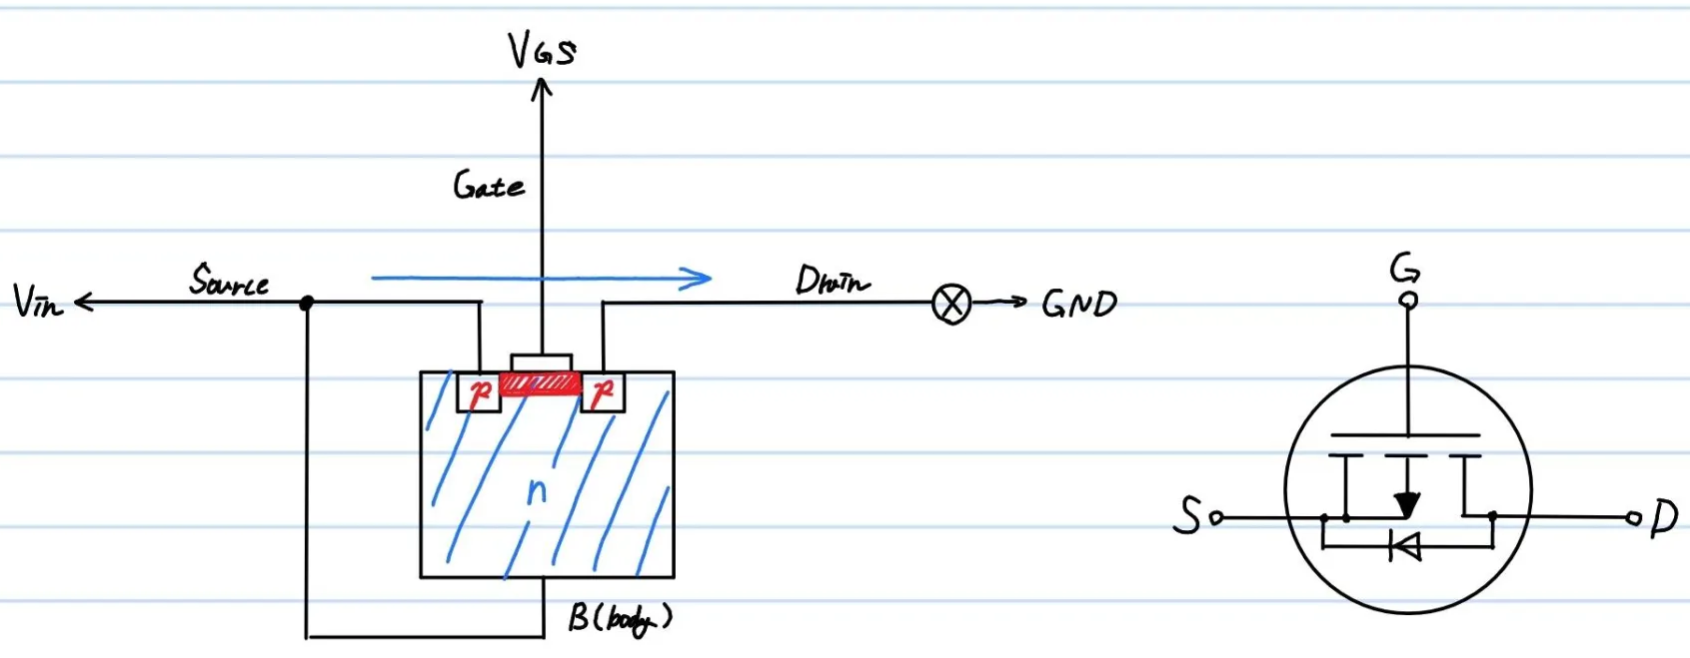 VGS
Gate
Source
Drain
Vin
GND
p
p
n
B(body)
G
S
D